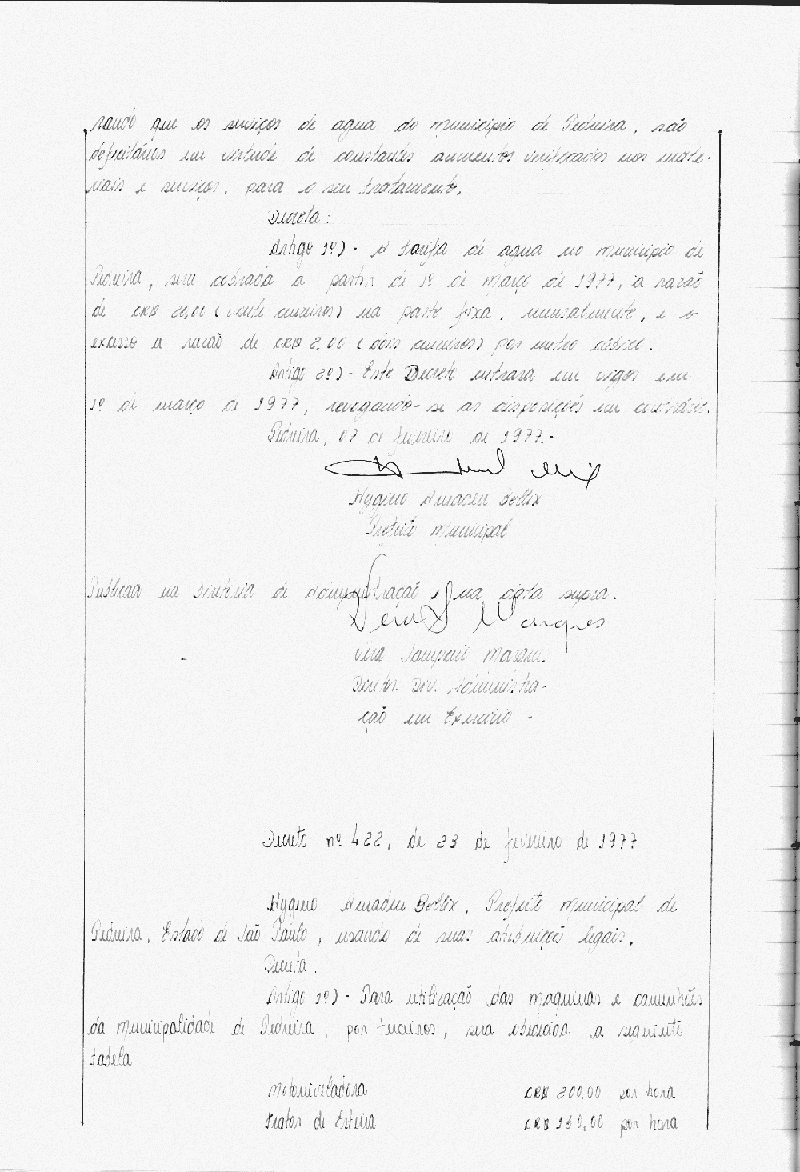 rando que os serviços de agua do município de Pedreira, são
deficitários em virtude de constantes aumentos verificados nos mate-
riais e serviços, para o seu tratamento.
Decreta:
Artigo 1º) - A tarifa de agua no município de
Pedreira, sera cobrada a partir de 1º de março de 1977, a razão
de CR$ 20,00 (vinte cruzeiros) na parte fixa, mensalmente, e o
excesso a razão de CR$ 2,00 (dois cruzeiros) por metro cúbico.
Artigo 2º) - Este Decreto entrara em vigor em
1º de março de 1977, revogando-se as disposições em contrário.
Pedreira, 07 de fevereiro de 1977.-
Hygino Amadeu Bellix
Prefeito Municipal
Publicado na Diretoria de Administração, na data supra.
Marques
Vera Sampaio Marques
Diretor Div. Administra-
ção em Exercício -
Decreto nº 422, de 23 de fevereiro de 1977
Hygino Amadeu Bellix, Prefeito municipal de
Pedreira, Estado de São Paulo, usando de suas atribuições legais,
Decreta.
Artigo 1º) - Para utilização das maquinas e caminhões
da municipalidade de Pedreira, por terceiros, sera obedecida a seguinte
tabela
Motoniveladora CR$ 200,00 por hora
Trator de Esteira CR$ 150,00 por hora